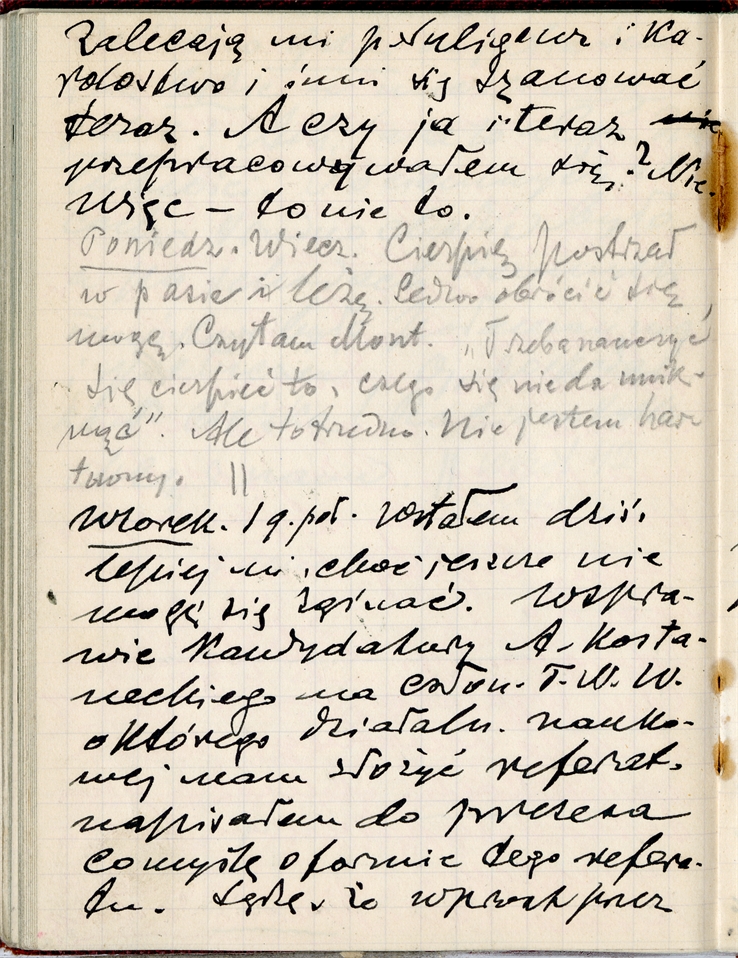 Zalecają mi p. Fuligew i Ka-
rłostwo i inni się szanować
teraz. A czy ja i teraz nie
przepracowywałem się? Nie.
Więc – to nie to.
Poniedz. Wiecz. Cierpię postrzał
w pasie i leżę. Ledwo obrócić się
mogę. Czytam Mont. „Trzeba nauczyć
się cierpieć to, czego się nie da unik-
nąć”. Ale to trudno. Nie jestem har
towny. ||
Wtorek. 19. paź. wstałem dziś.
lepiej mi, choć jeszcze nie
mogę się zginać. W spra-
wie kandydatury A. Kosta-
neckiego na członk. T.W.W.
o którego działaln. nauko-
wej mam złożyć referat,
napisałem do prezesa
co myślę o formie tego refera-
tu. Sądzę, że wprost przez